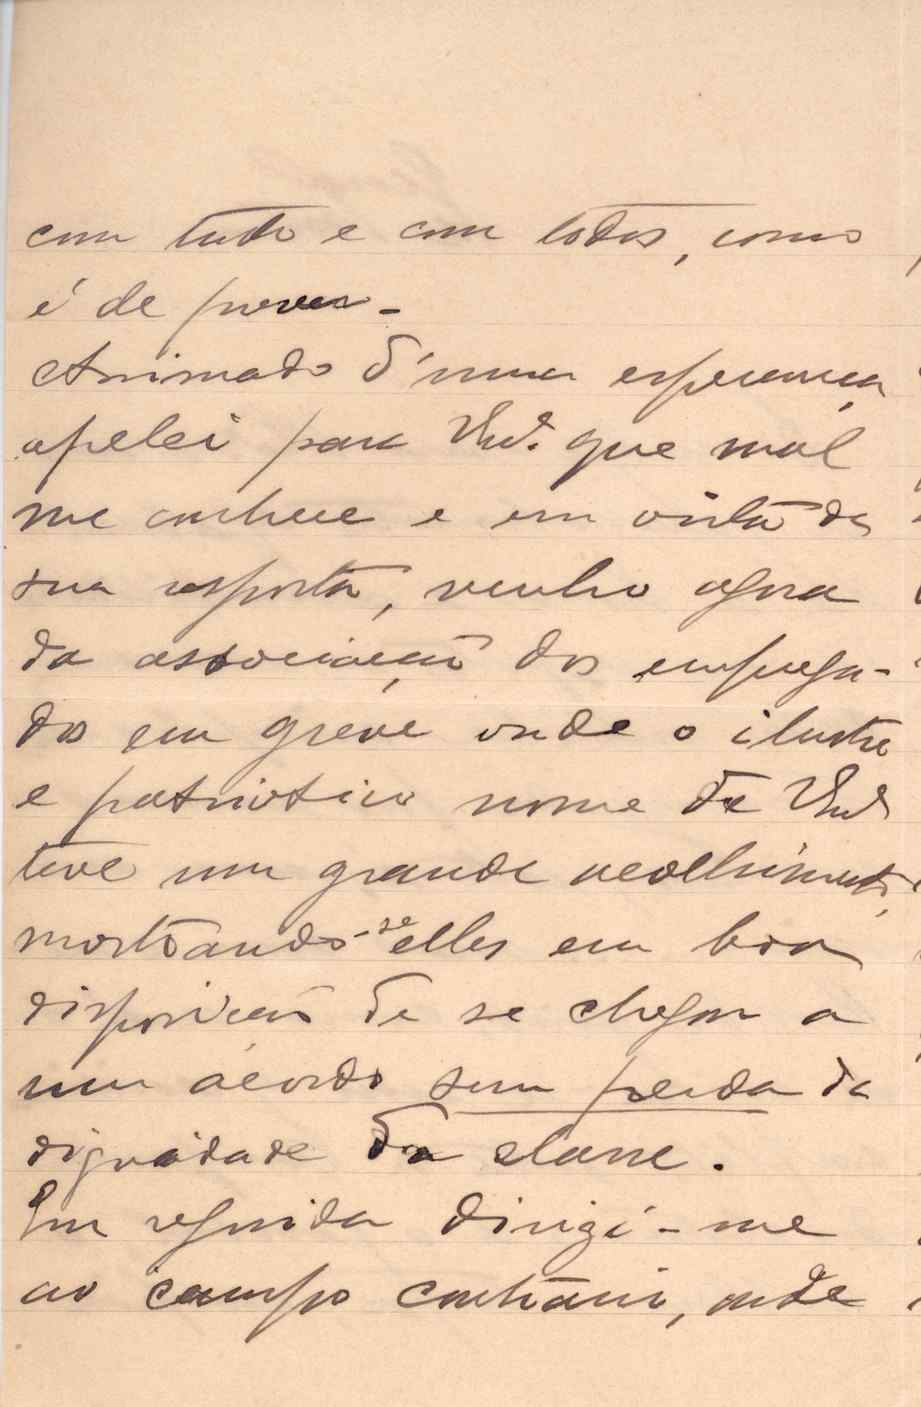 com tudo e com todos, como
é de prever -
Animado d'uma esperança,
apelei para V. que mal
me conhece e em vista da
sua resposta, venho agora
da associação dos emprega-
dos em greve onde o ilustre
e patriotico nome de V.
teve um grande acolhimento,
mostrando-se elles em boa
disposição de se chegar a
um acordo sem perda da
dignidade da classe.
Em seguida dirigi-me
ao campo contrario, onde